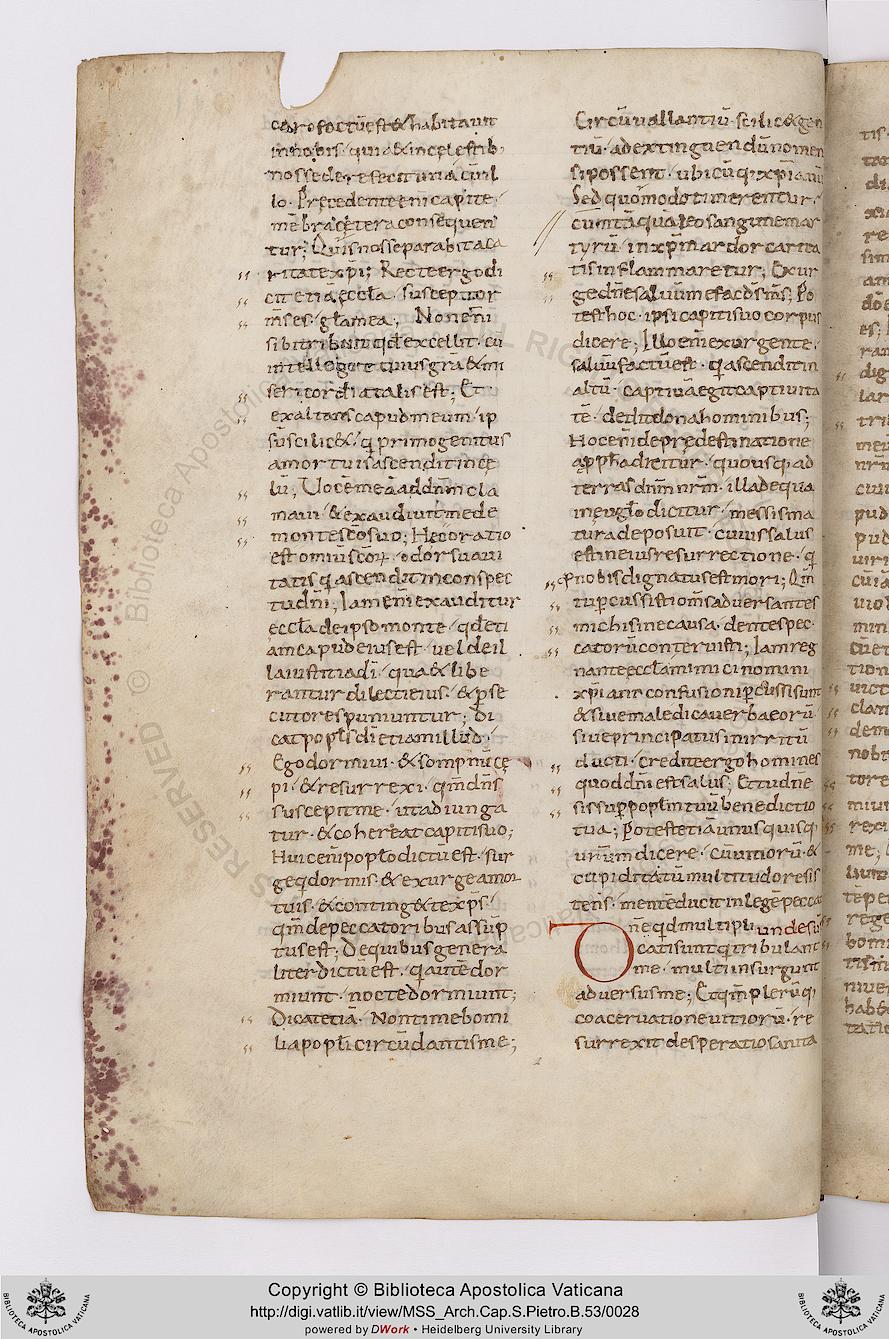 caro factū est & habitavit
in nobis· quia & in celestib·
nos sedere fecit una cū il
lo· Precedente enī capite·
mēbra cetera consequen
tur; Quis nos separabit a ca
ritate xp̄i; Recte ergo di
cit etiā eccl̄a· susceptor
m̄s es· gl̄a mea; Non enī
sibi tribuit qd̄ excellit· cū
intellegit cuius grā & mi
sericordia talis est; Et
exaltans capud meum· ip
sū scilic&· q̄ primogenitus
a mortuis ascendit in cę
lū; Voce mea ad dn̄m cla
mavi· & exaudivit me de
monte sc̄o suo; Hec oratio
est omniū sc̄oꝝ· odor suavi
tatis q̄ ascendit in conspec
tu dn̄i; Iam enī exauditur
eccl̄a de ipso monte· qd̄ eti
am capud eius est· vel de il
la iustitia dī· qua & libe
rantur dilecti eius· & p̄se
cutores puniuntur; Di
cat popl̄s dī etiam illud·
Ego dormivi· & sompnū cę
pi· & resurrexi· qm̄ dn̄s
suscepit me· ut adiunga
tur· & cohereat capiti suo;
Huic enī poplo dictū est· sur
ge q̄ dormis· & exurge a mor
tuis· & conting& te xp̄s·
qm̄ de peccatoribus assūp
tus est; De quibus genera
liter dictū est· q̄ autē dor
miunt· nocte dormiunt;
Dicat etiā· Non timebo mi
lia popl̄i circūdantis me;
Circūvallantiū· scilic& gen
tiū· ad extinguendū nomen
si possent· ubicūq; xp̄ianū
Sed quomodo timerentur·
cum tāquā oleo sanguine mar
tyrū· in xp̄m ardor carita
tis inflammaretur; Exur
ge dn̄e salvū me fac ds̄ m̄s; Po
test hoc· ipsi capiti suo corpus
dicere; Illo enī exurgente·
salvū factū est· q̄ ascendit in
altū· captivā egit captivita
tē· dedit dona hominibus;
Hoc enī de predestinatione
a pph̄a dicitur· quousq; ad
terras dn̄m nr̄m· illa de qua
in eugl̄o dicitur· messis ma
tura deposuit· cuius salus
est in eius resurrectione· q̄
p̄ nobis dignatus est mori; Qm̄
tu pcussisti om̄s adversantes
michi sine causa· dentes pec
catorū contervisti; Iam reg
nante eccl̄a inimici nomini
xp̄iani confusioni pcussi sunt
& sive maledica verba eorū·
sive principatus in irritū
ducti· Credite ergo homines
quod dn̄i est salus; Et tu dn̄e
sis sup poplm tuū benedictio
tua; Potest etiā unusquisq;
urm̄m dicere· cū vitiorū· &
cupiditatū multitudo resis
tens· mentē ducit in lege pecca
Dn̄e qd̄ multipli
cati sunt q̄ tribulant
me· multi insurgunt
adversus me; Et qm̄ plerūq;
coacervatione vitiorū· re
surrexit desperatio sanita
Copyright © Biblioteca Apostolica Vaticana
http://digi.vatlib.it/view/MSS_Arch.Cap.S.Pietro.B.53/0028
powered by DWork • Heidelberg University Library
BIBLIOTECA APOSTOLICA VATICANA
BIBLIOTECA APOSTOLICA VATICANA